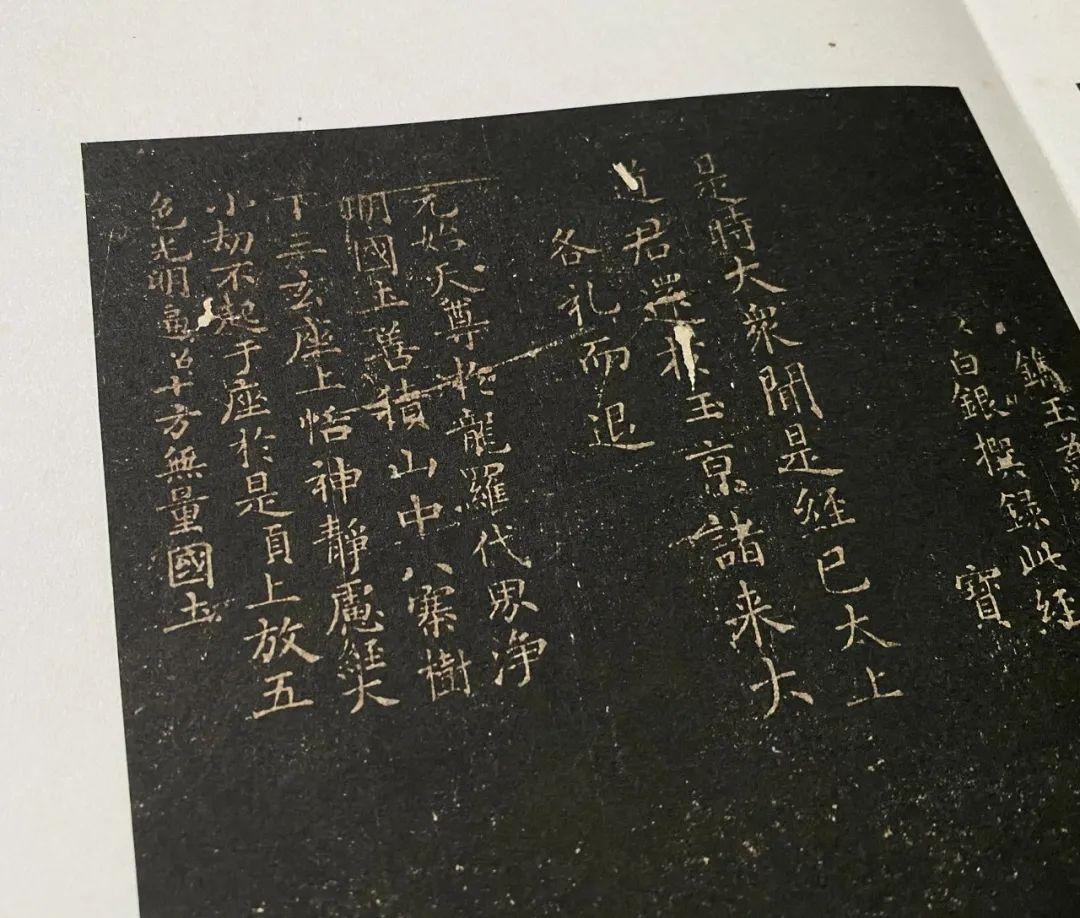 鐫玉
白銀撰録此經
寶
是時大衆聞是經已大上
道君還於玉京諸来大
各礼而退
元始天尊於龍羅代界浄
明國土善積山中八騫樹
下三玄座上恬神靜慮經大
小劫不起于座於是頂上放五
色光明遍公十方無量國土